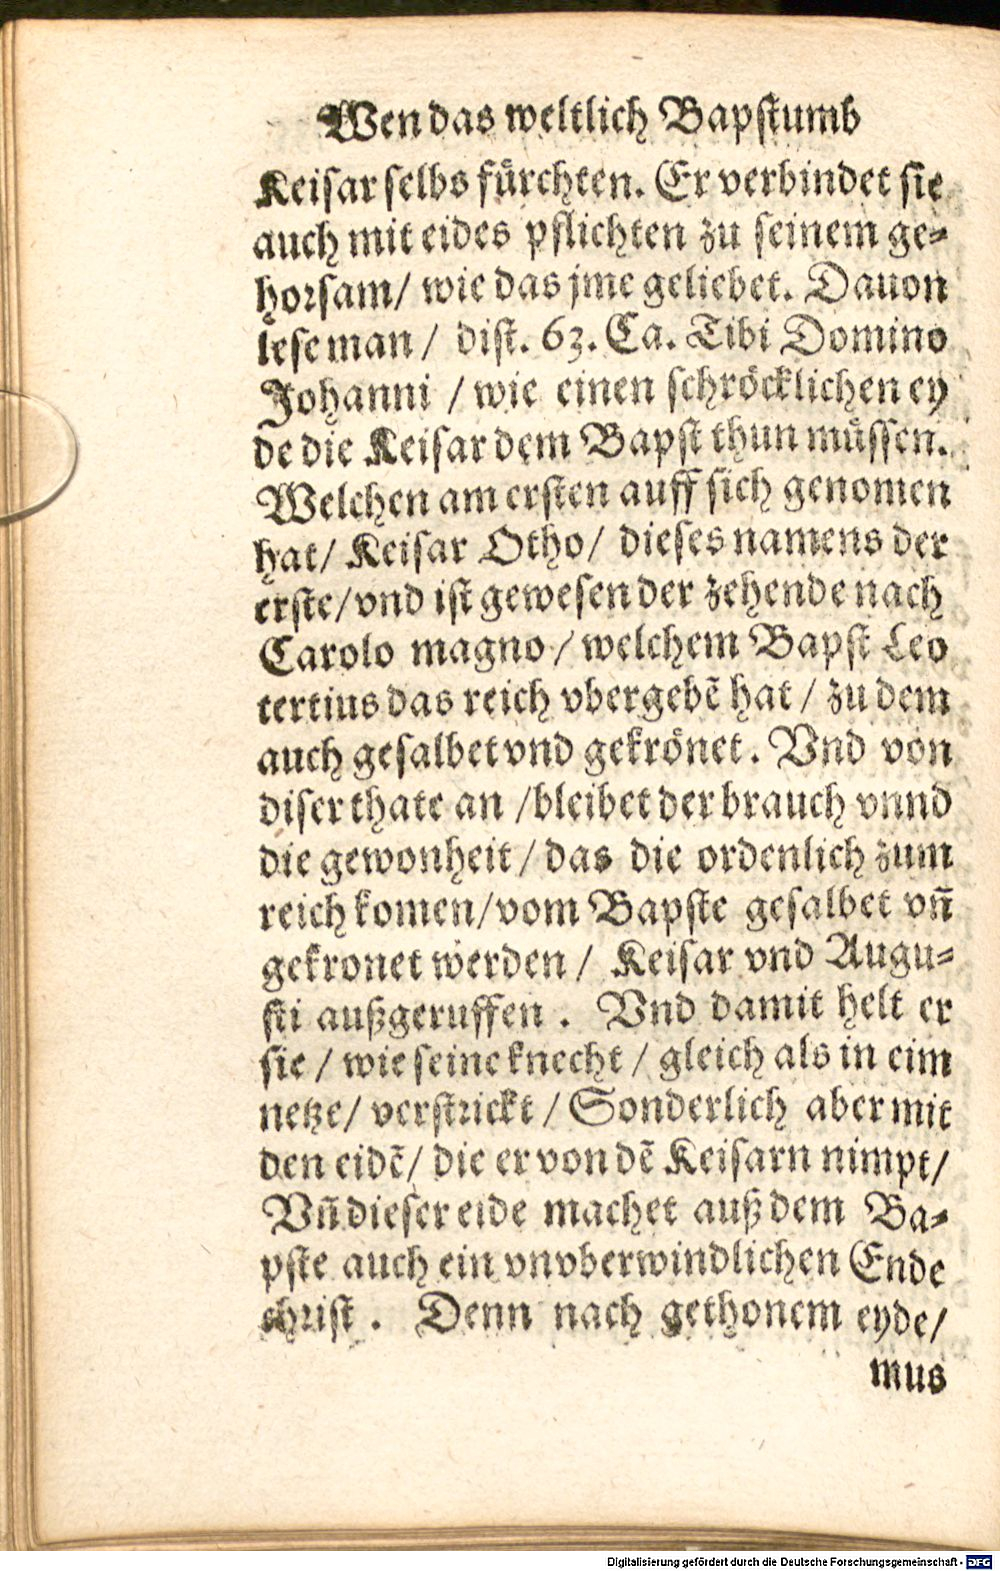 Wen das weltlich Bapstumb
Keisar selbs fürchten. Er verbindet sie
auch mit eides pflichten zu seinem ge-
horsam/ wie das jme geliebet. Dauon
lese man / dist. 63. Ca. Tibi Domino
Johanni / wie einen schröcklichen ey
de die Keisar dem Bapst thun müssen.
Welchen am ersten auff sich genomen
hat/ Keisar Otho/ dieses namens der
erste/ vnd ist gewesen der zehende nach
Carolo magno / welchem Bapst Leo
tertius das reich vbergebẽ hat / zu dem
auch gesalbet vnd gekrönet. Vnd von
diser thate an /bleibet der brauch vnnd
die gewonheit / das die ordenlich zum
reich komen/vom Bapste gesalbet vñ
gekronet werden / Keisar vnd Augu-
sti außgeruffen . Vnd damit helt er
sie / wie seine knecht / gleich als in eim
netze/ verstrickt / Sonderlich aber mit
den eidẽ/ die er von dẽ Keisarn nimpt/
Vñ dieser eide machet auß dem Ba-
pste auch ein vnvberwindlichen Ende
christ . Denn nach gethonem eyde/
mus
Digitalisierung gefördert durch die Deutsche Forschungsgemeinschaft - DFG